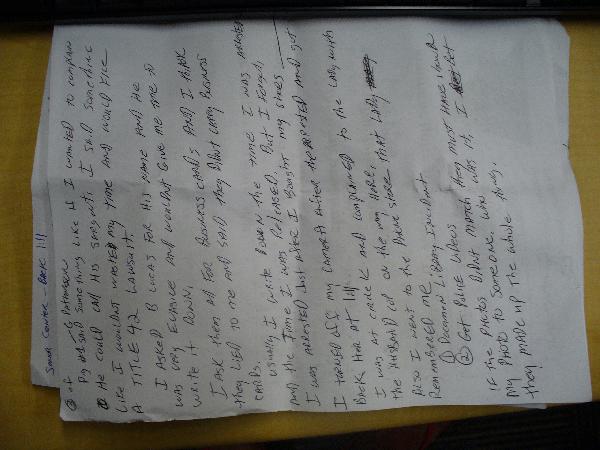 Small Center - Back 1:11
Pig said something like if I wanted to complain
he could call his sergeant. I said something
like I wouldnt wasted my time and would file
A TITLE 42 LAWSUIT.
I asked B LUCAS for his name and he
was very evasive and wouldnt give me time to
write it down.
I ask them all for business cards and I think
they lied to me and said they didnt carry business
cards.
Usually I write down the time I was arrested
and the time I was released. But I
I was arrested just after I bought my shoes
I turned off my camera after the arrested and got
back her at 1:11
I was at circle K and complained to the lady with
the husband cop on the way here.
Also I went to the phone store that lady
remembered me
① Document library incident
② Get police videos
if the photos didnt match they most have
my photo to someone. who was it, I bet
they made up the whole thing.